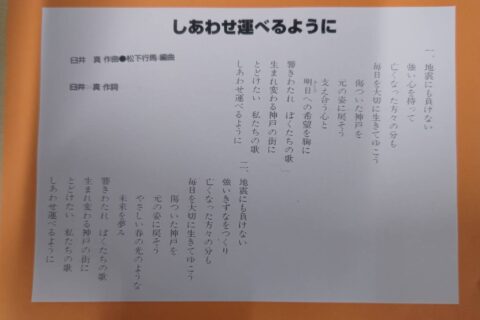 しあわせ運べるように
臼井 真 作曲●松下行馬 編曲
臼井 真 作詞
一、地震にも負けない
強い心を持って
亡くなった方々の分も
毎日を大切に生きてゆこう
傷ついた神戸を
元の姿に戻そう
支え合う心と
明日への希望を胸に
響きわたれ ぼくたちの歌
生まれ変わる神戸の街に
とどけたい 私たちの歌
しあわせ運べるように
二、地震にも負けない
強いきずなをつくり
亡くなった方々の分も
毎日を大切に生きてゆこう
傷ついた神戸を
元の姿に戻そう
やさしい春の光のような
未来を夢み
響きわたれ ぼくたちの歌
生まれ変わる神戸の街に
とどけたい 私たちの歌
しあわせ運べるように